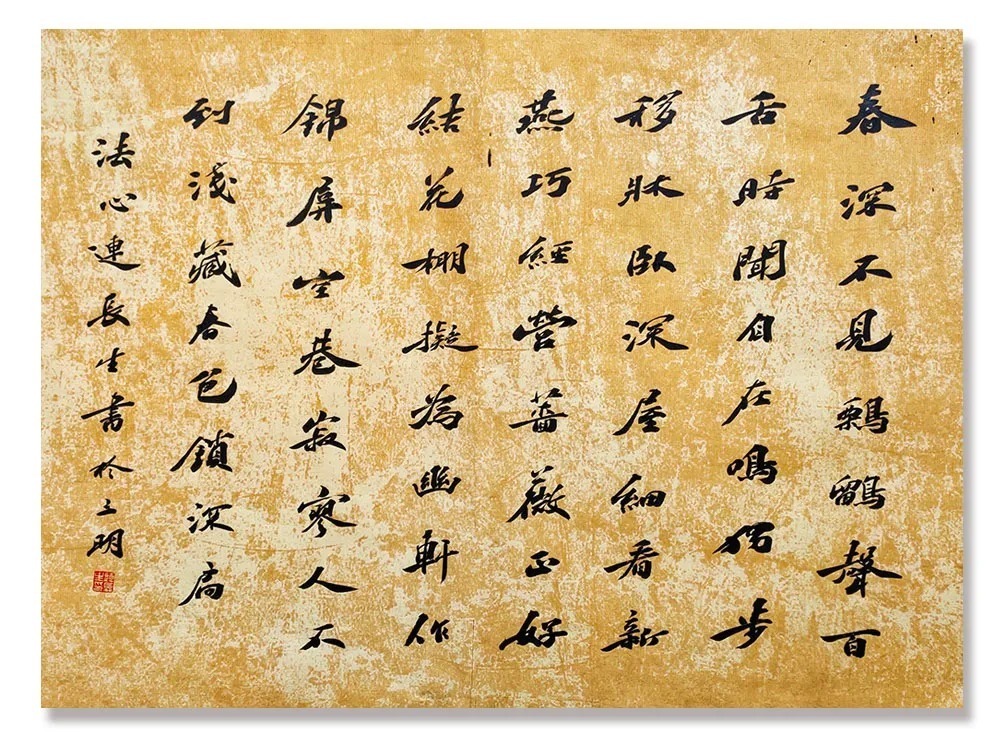 春深不見鷅鶹聲百
舌時聞自在鳴獨步
移牀臥深屋細看新
燕巧經營薔薇正好
結花棚擬為幽軒作
錦屏空巷寂寥人不
到淺藏春色鎖深扃
法心連長生書於三明